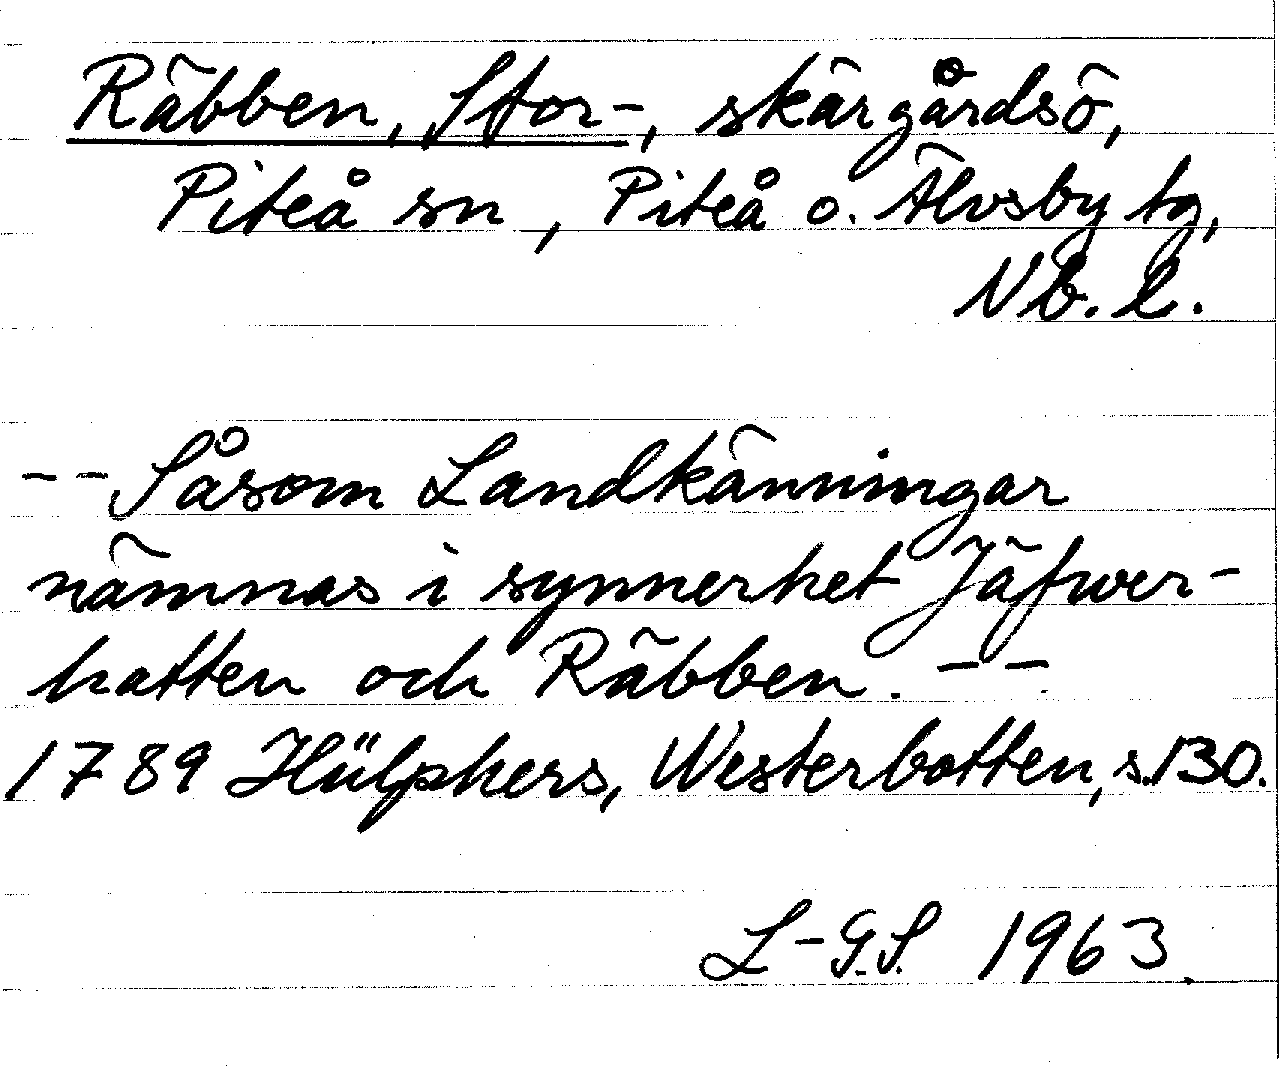 Räbben, Stor-, skärgårdsö,
Piteå sn, Piteå o. Älvsby tg,
Nb. l.
-- Såsom Landkänningar
nämnas i synnerhet Jäfwer-
hatten och Räbben. --
1789 Hülphers, Westerbotten, s.130.
L-G.S. 1963.